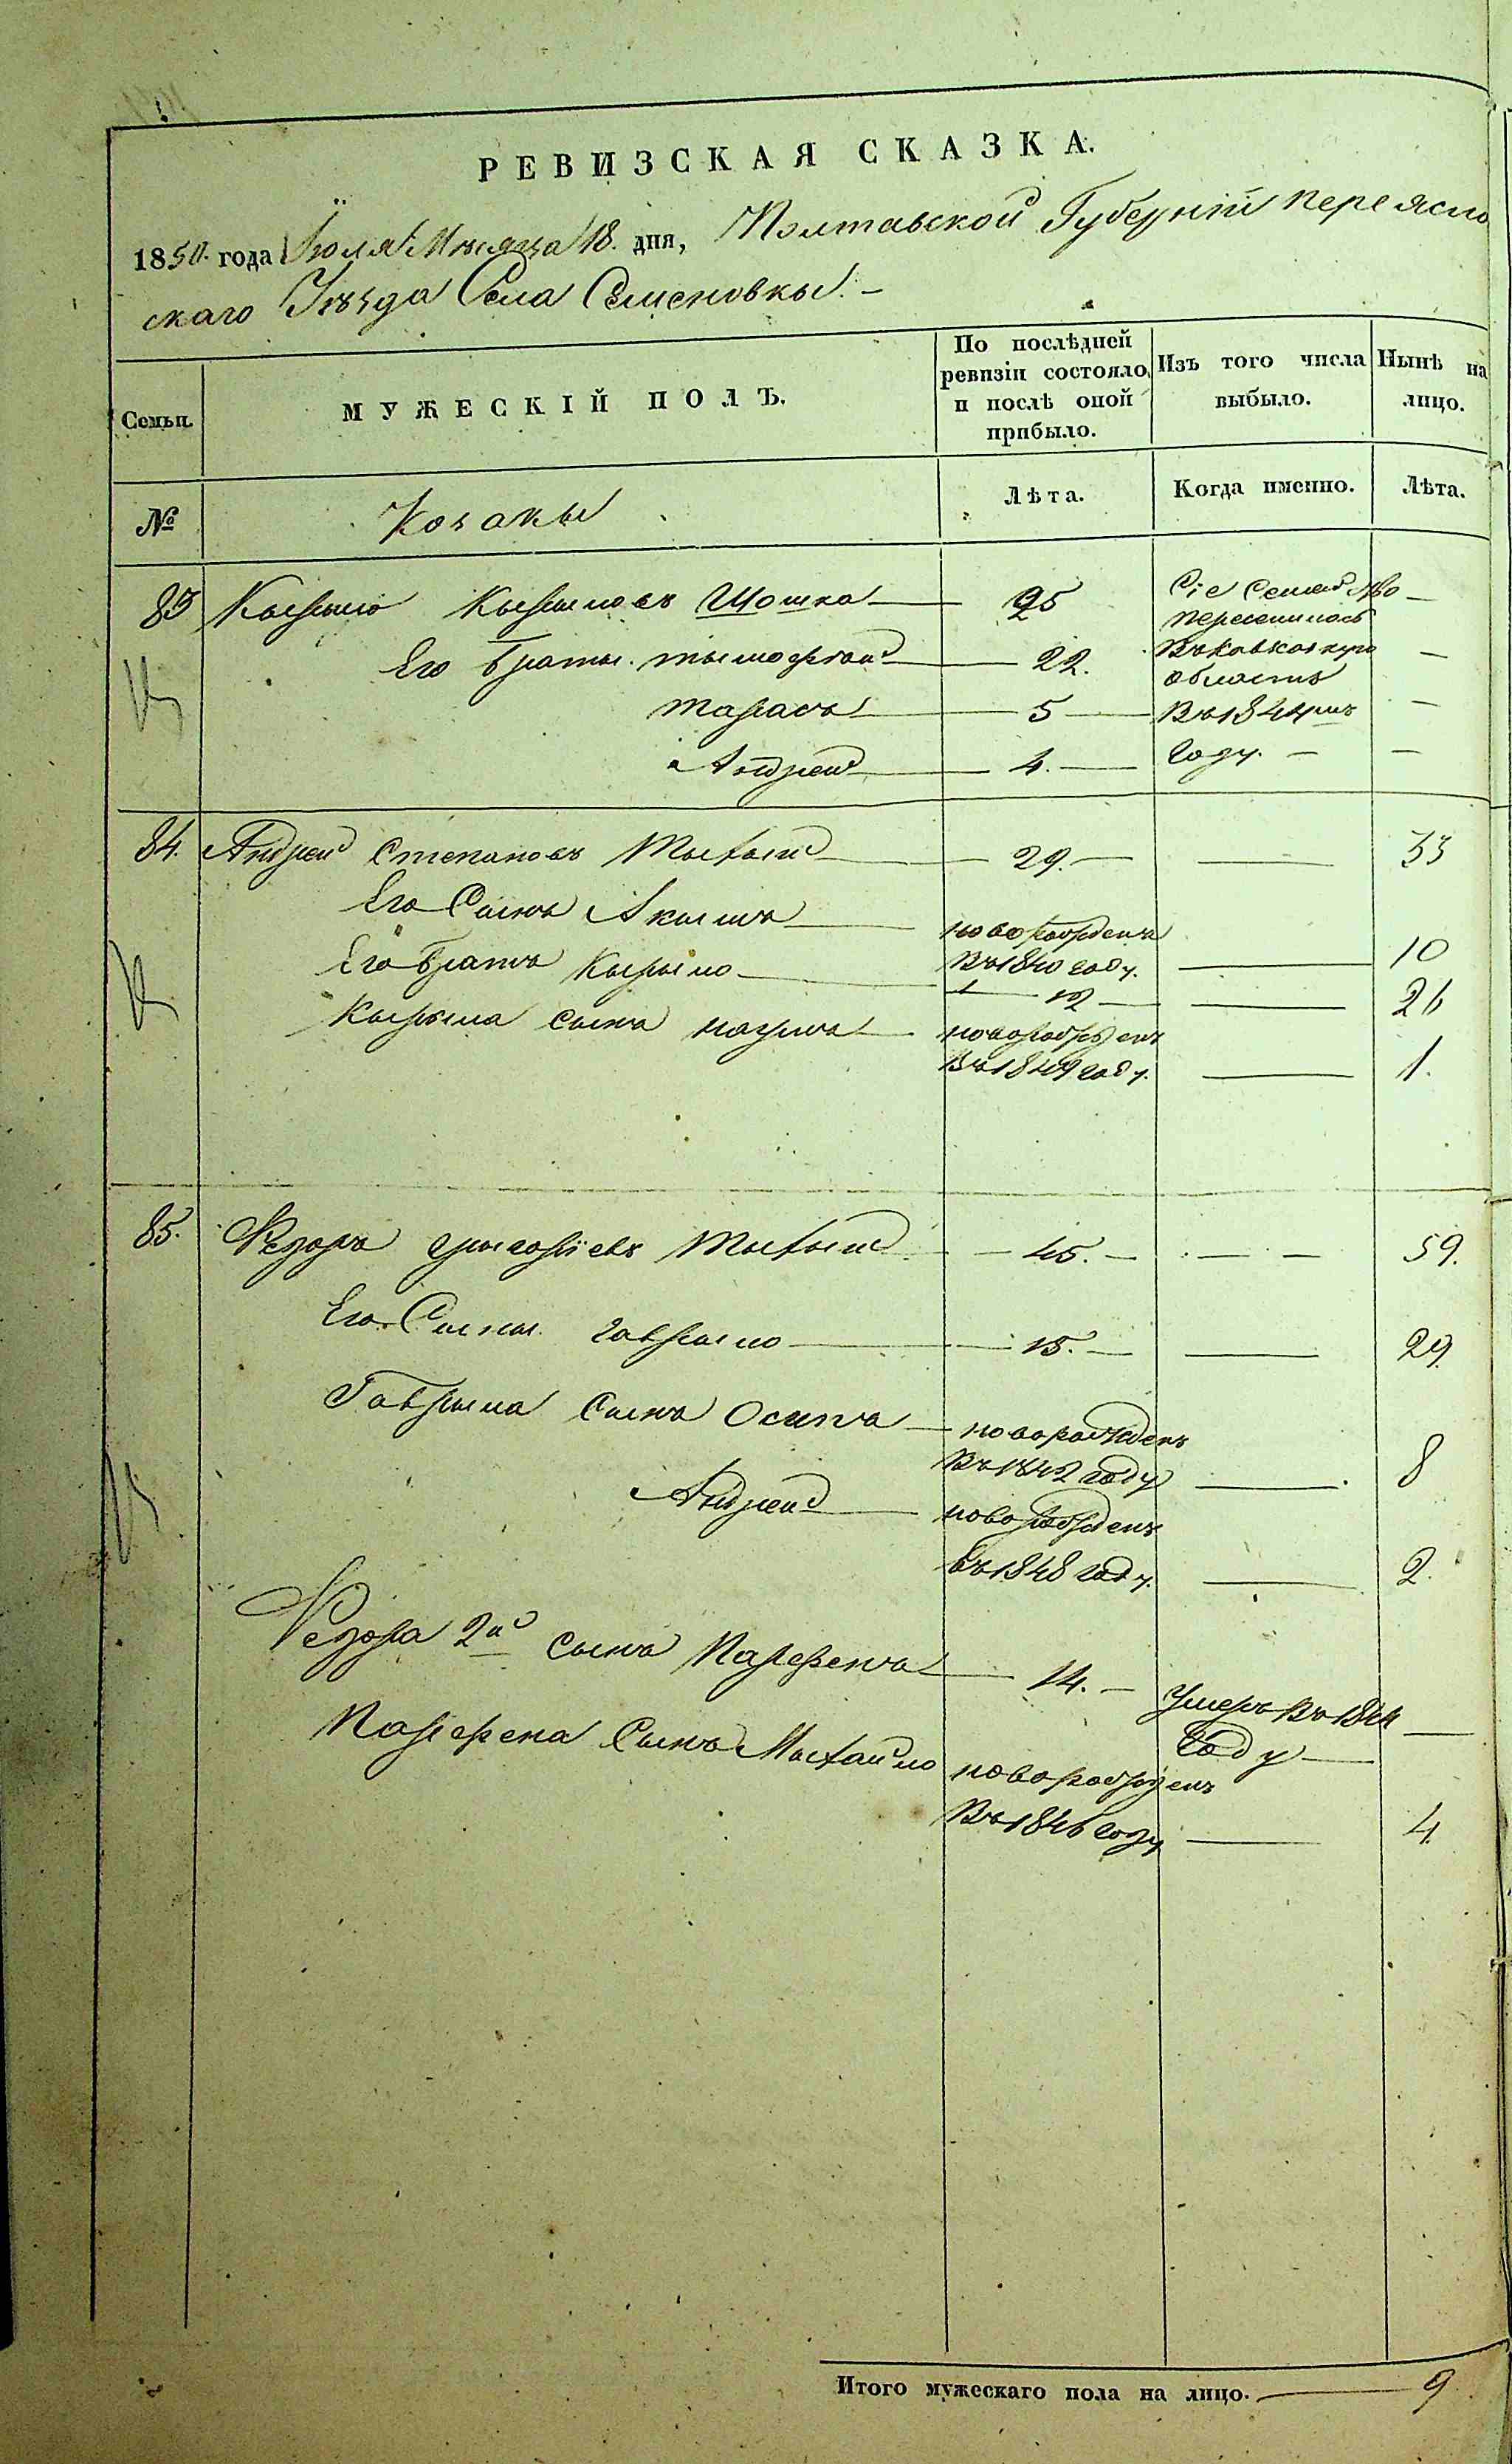 РЕВИЗСКАЯ СКАЗКА.
1850. года Іюля Мѣсяца 18. дня, Полтавской Губерніи Переясло
скаго Уѣзда Села Семеновкы. –
Семьи.
МУЖЕСКІЙ ПОЛЪ.
По послѣдней ревизіи состояло и послѣ оной прибыло.
Изъ того числа выбыло.
Нынѣ на лицо.
№
Козакы
Лѣта.
Когда именно.
Лѣта.
83 Кырыло Кырыловъ Шошка 25 Сіе Семейство –
переселилось
Его браты. тымофѣй 22. Въ Кавказкую –
область
тарасъ 5 Въ 1844мъ –
Андрей 4. году. – –
84. Андрей Степановъ Тыхый 29. 33
Его Сынъ Акымъ новорожденъ
Въ 1840 году. 10
Его братъ Кырыло 12 26
Кырыла сынъ наумъ новорожденъ
Въ 1849 году. 1.
85. Федоръ григоріевъ Тыхый 45. 59.
Его Сыны. гаврыло 15. 29.
Гаврыла Сынъ Осипъ новорожденъ
Въ 1842 году 8
Андрей новорожденъ
въ 1848 году. 2.
Федора 2й сынъ Парфенъ 14. Умеръ Въ 1844
году –
Парфена Сынъ Мыхайло новорожденъ
Въ 1846 году 4.
Итого мужескаго пола на лицо. 9.